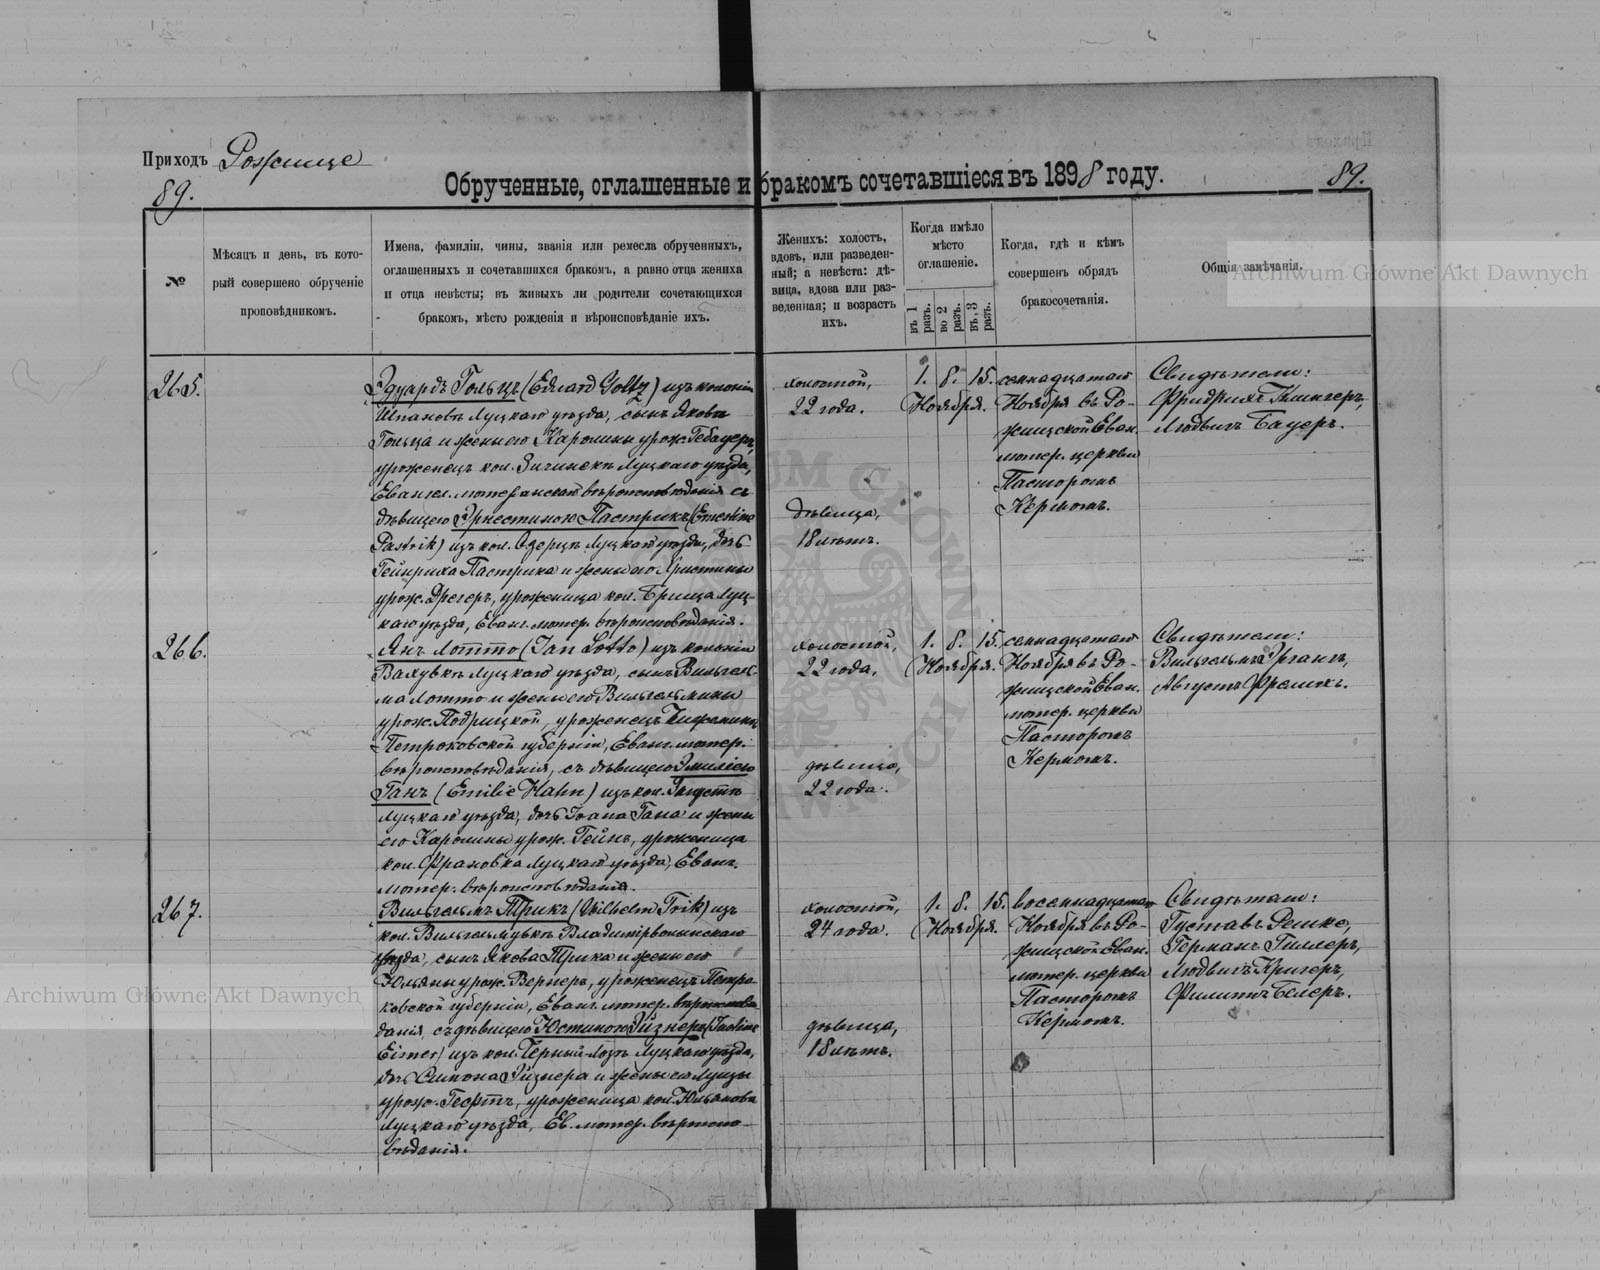 Приходъ Рожище
89.
Обрученные, оглашенные и бракомъ сочетавшіеся въ 1898 году.
89.
№
Мѣсяцъ и день, въ кото-
рый совершено обрученіе
проповѣдникомъ.
Имена, фамиліи, чины, званія или ремесла обрученныхъ,
оглашенныхъ и сочетавшихся бракомъ, а равно отца жениха
и отца невѣсты; въ живыхъ ли родители сочетающихся
бракомъ, мѣсто рожденія и вѣроисповѣданіе ихъ.
Женихъ: холостъ,
вдовъ, или разведен-
ный; а невѣста: дѣ-
вица, вдова или раз-
веденная; и возрастъ
ихъ.
Когда имѣло
мѣсто
оглашеніе.
въ 1 разъ.
во 2 разъ.
въ 3 разъ.
Когда, гдѣ и кѣмъ
совершенъ обрядъ
бракосочетанія.
Общія замѣчанія.
265.
Эдуардъ Гольцъ (Eduard Goltz) изъ колоніи
Шпановъ Луцкаго уѣзда, сынъ Якова
Гольца и жены его Каролины урож. Гебауеръ,
уроженецъ кол. Луцкаго уѣзда,
Евангел. лютеранскаго вѣроисповѣданія съ
дѣвицею Эрнестиною Пастрикъ (Ernestine
Pastrik) изъ кол. Озерцъ Луцкаго уѣзда, дочь
Гейнриха Пастрика и жены его Христины
урож. Дрегеръ, уроженица кол. Брища Луц-
каго уѣзда, Еванг. лютер. вѣроисповѣданія.
холостой,
22 года.
дѣвица,
18 лѣтъ.
1. 8. 15.
Ноября.
семнадцатаго
Ноября въ Ро-
жищской Еван.
лютер. церкви
Пасторомъ
Кермомъ.
Свидѣтели:
Фридрихъ Клингеръ,
Людвигъ Бауеръ.
266.
Янъ Лотто (Jan Lotto) изъ колоніи
Вахувкъ Луцкаго уѣзда, сынъ Вильгель-
ма Лотто и жены его Вильгельмины
урож. Подрицкой, уроженецъ
Петроковской губерніи, Еванг. лютер.
вѣроисповѣданія, съ дѣвицею Эмиліею
Ганъ (Emilie Hahn) изъ кол.
Луцкаго уѣзда, дочь Іоана Гана и жены
его Каролины урож. Гейнъ, уроженица
кол. Франовка Луцкаго уѣзда, Еванг.
лютер. вѣроисповѣданія.
холостой,
22 года.
дѣвица,
22 года.
1. 8. 15.
Ноября.
семнадцатаго
Ноября въ Ро-
жищской Еван.
лютер. церкви
Пасторомъ
Кермомъ.
Свидѣтели:
Вильгельмъ Рганъ,
Августъ Фрелихъ.
267.
Вильгельмъ Трикъ (Wilhelm Trik) изъ
кол. Вильгельмувкъ Владимірволынскаго
уѣзда, сынъ Якова Трика и жены его
Юльяны урож. Вернеръ, уроженецъ Петро-
ковской губерніи, Еванг. лютер. вѣроисповѣ-
данія, съ дѣвицею Юстиною Эйзнеръ (Justine
Eisner) изъ кол. Черный-Лозъ Луцкаго уѣзда,
дочь Симона Эйзнера и жены его Луизы
урож. Гесртъ, уроженица кол. Юльянова
Луцкаго уѣзда, Ев. лютер. вѣроиспо-
вѣданія.
холостой,
24 года.
дѣвица,
18 лѣтъ.
1. 8. 15.
Ноября.
восемнадцатаго
Ноября въ Ро-
жищской Еван.
лютер. церкви
Пасторомъ
Кермомъ.
Свидѣтели:
Густавъ Решке,
Германъ Гиллеръ,
Людвигъ Кригеръ,
Филиппъ Белеръ.
Archiwum Główne Akt Dawnych
Archiwum Główne Akt Dawnych